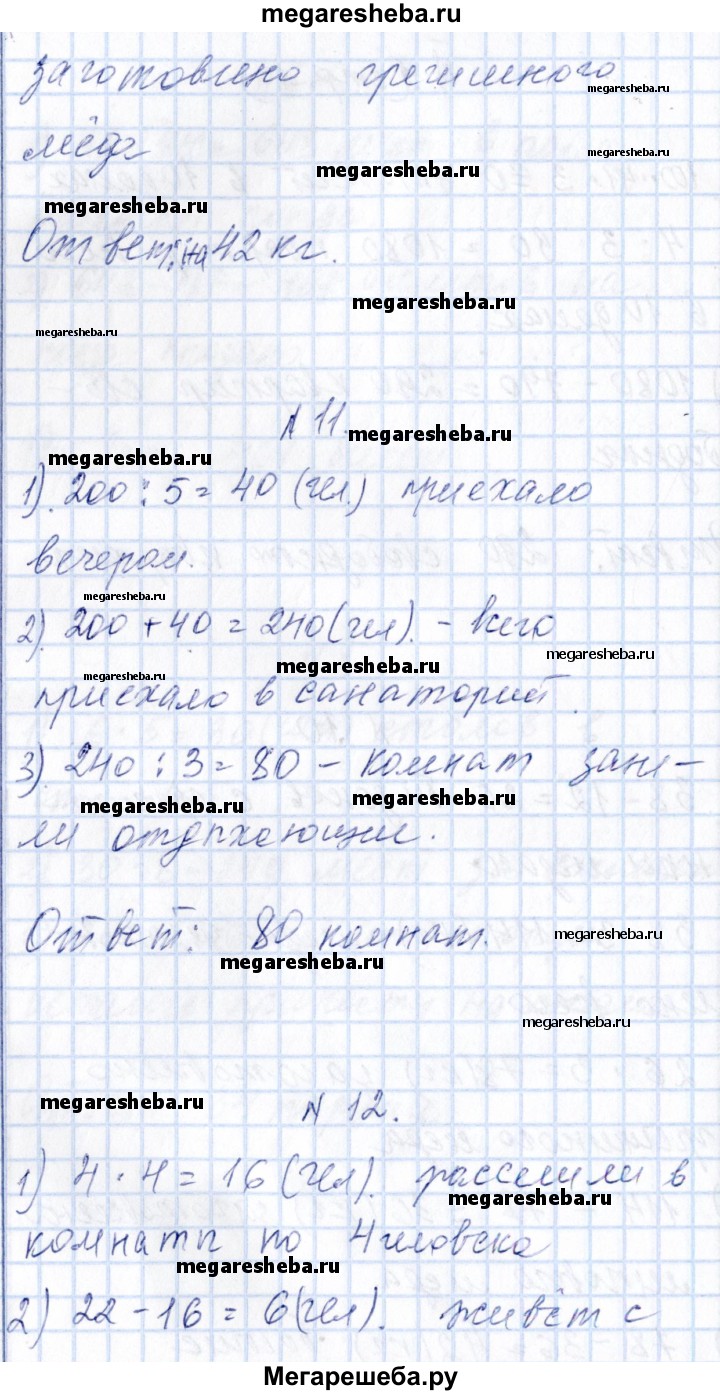 megaresheba.ru
заготовлено гречишного
megaresheba.ru
мёда
megaresheba.ru
megaresheba.ru
Ответ: на 42 кг.
megaresheba.ru
megaresheba.ru
N 11.
megaresheba.ru
megaresheba.ru
1). 200 : 5 = 40 (чел.) приехало
вечером.
megaresheba.ru
2). 200 + 40 = 240 (чел). - всего
megaresheba.ru
megaresheba.ru
megaresheba.ru
приехало в санаторий.
3). 240 : 3 = 80 - комнат заня-
megaresheba.ru
megaresheba.ru
ли отдыхающие.
Ответ: 80 комнат.
megaresheba.ru
megaresheba.ru
megaresheba.ru
megaresheba.ru
N 12.
1) 4 · 4 = 16 (чел). расселили в
megaresheba.ru
комнаты по 4 человека
megaresheba.ru
2) 22 - 16 = 6 (чел). живёт с
Мегарешеба.ру